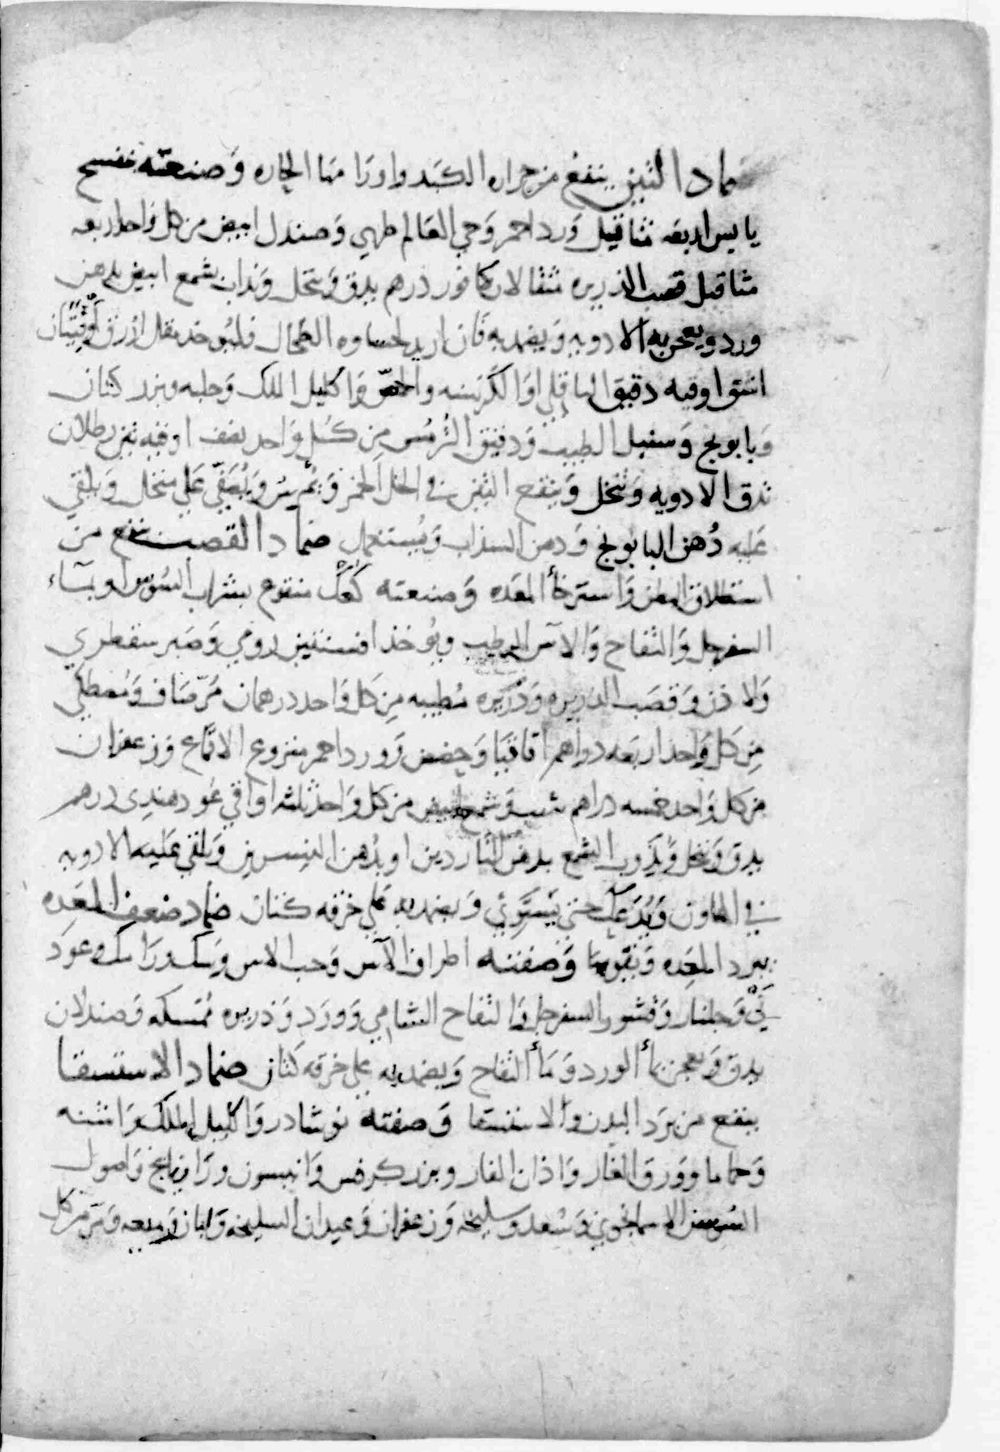 ضماد التين ينفع من حراره الكبد واورامها الحاره وصنعته بنفسج
يابس اربعه مثاقيل ورد احمر وحي العالم طري وصندل ابيض من كل واحد اربعه
مثاقيل قصب الذريره مثقالان كافور درهم يدق وينخل ويذاب بشمع ابيض بدهن
ورد ويعجن به الادويه ويضمد به فان اريد لحساوه الطحال فليوخذ مقل ازرق اوقيتان
اشق اوقيه دقيق الباقلي او الكرسنه والحمص واكليل الملك وحلبه وبزر كتان
وبابونج وسنبل الطيب ودقيق الترمس من كل واحد نصف اوقيه تين رطلان
تدق الادويه وتنخل وينقع التين في الخل الخمر ويمرس ويصفى على منخل ويلقى
عليه دهن البابونج ودهن السذاب ويستعمل ضماد القصب ينفع من
استطلاق البطن واسترخأ المعده وصنعته كعك منقوع بشراب السوس او بمآء
السفرجل والتفاح والاس الرطيب ويوخذ افسنتين رومي وصبر سقطري
ولاذن وقصب الذريره وذريره مطيبه من كل واحد درهمان مر صاف ومصطكي
من كل واحد اربعه دراهم اقاقيا وحضض وورد احمر منزوع الاقماع وزعفران
من كل واحد خمسه دراهم شب وشمع ابيض من كل واحد ثلثه اواقي عود هندي درهم
يدق وينخل ويذوب الشمع بدهن الناردين او بدهن النسرين ويلقى عليه الادويه
في الهاون ويدعك حتى يستوي ويضمد به على خرقه كتان ضماد ضعف المعده
يبرد المعده ويقويها وصفته اطراف الآس وحب الاس وسك ورامك وعود
ني وجلنار وقشور السفرجل والتفاح الشامي وورد وذريره ممسكه وصندلان
يدق ويعجن بمأ الورد ومأ التفاح ويضمد به على خرقه كتان ضماد الاستسقا
ينفع من برد البدن والاستسقا وصفته نوشادر واكليل الملك واشنه
وحماما وورق الغار واذان الفار وبزر كرفس وانيسون ورازيانج واصول
السوسن الاسمانجوني وسعد وسليخه وزعفران وعيدان السليخه ولبان وميعه ومر من كل